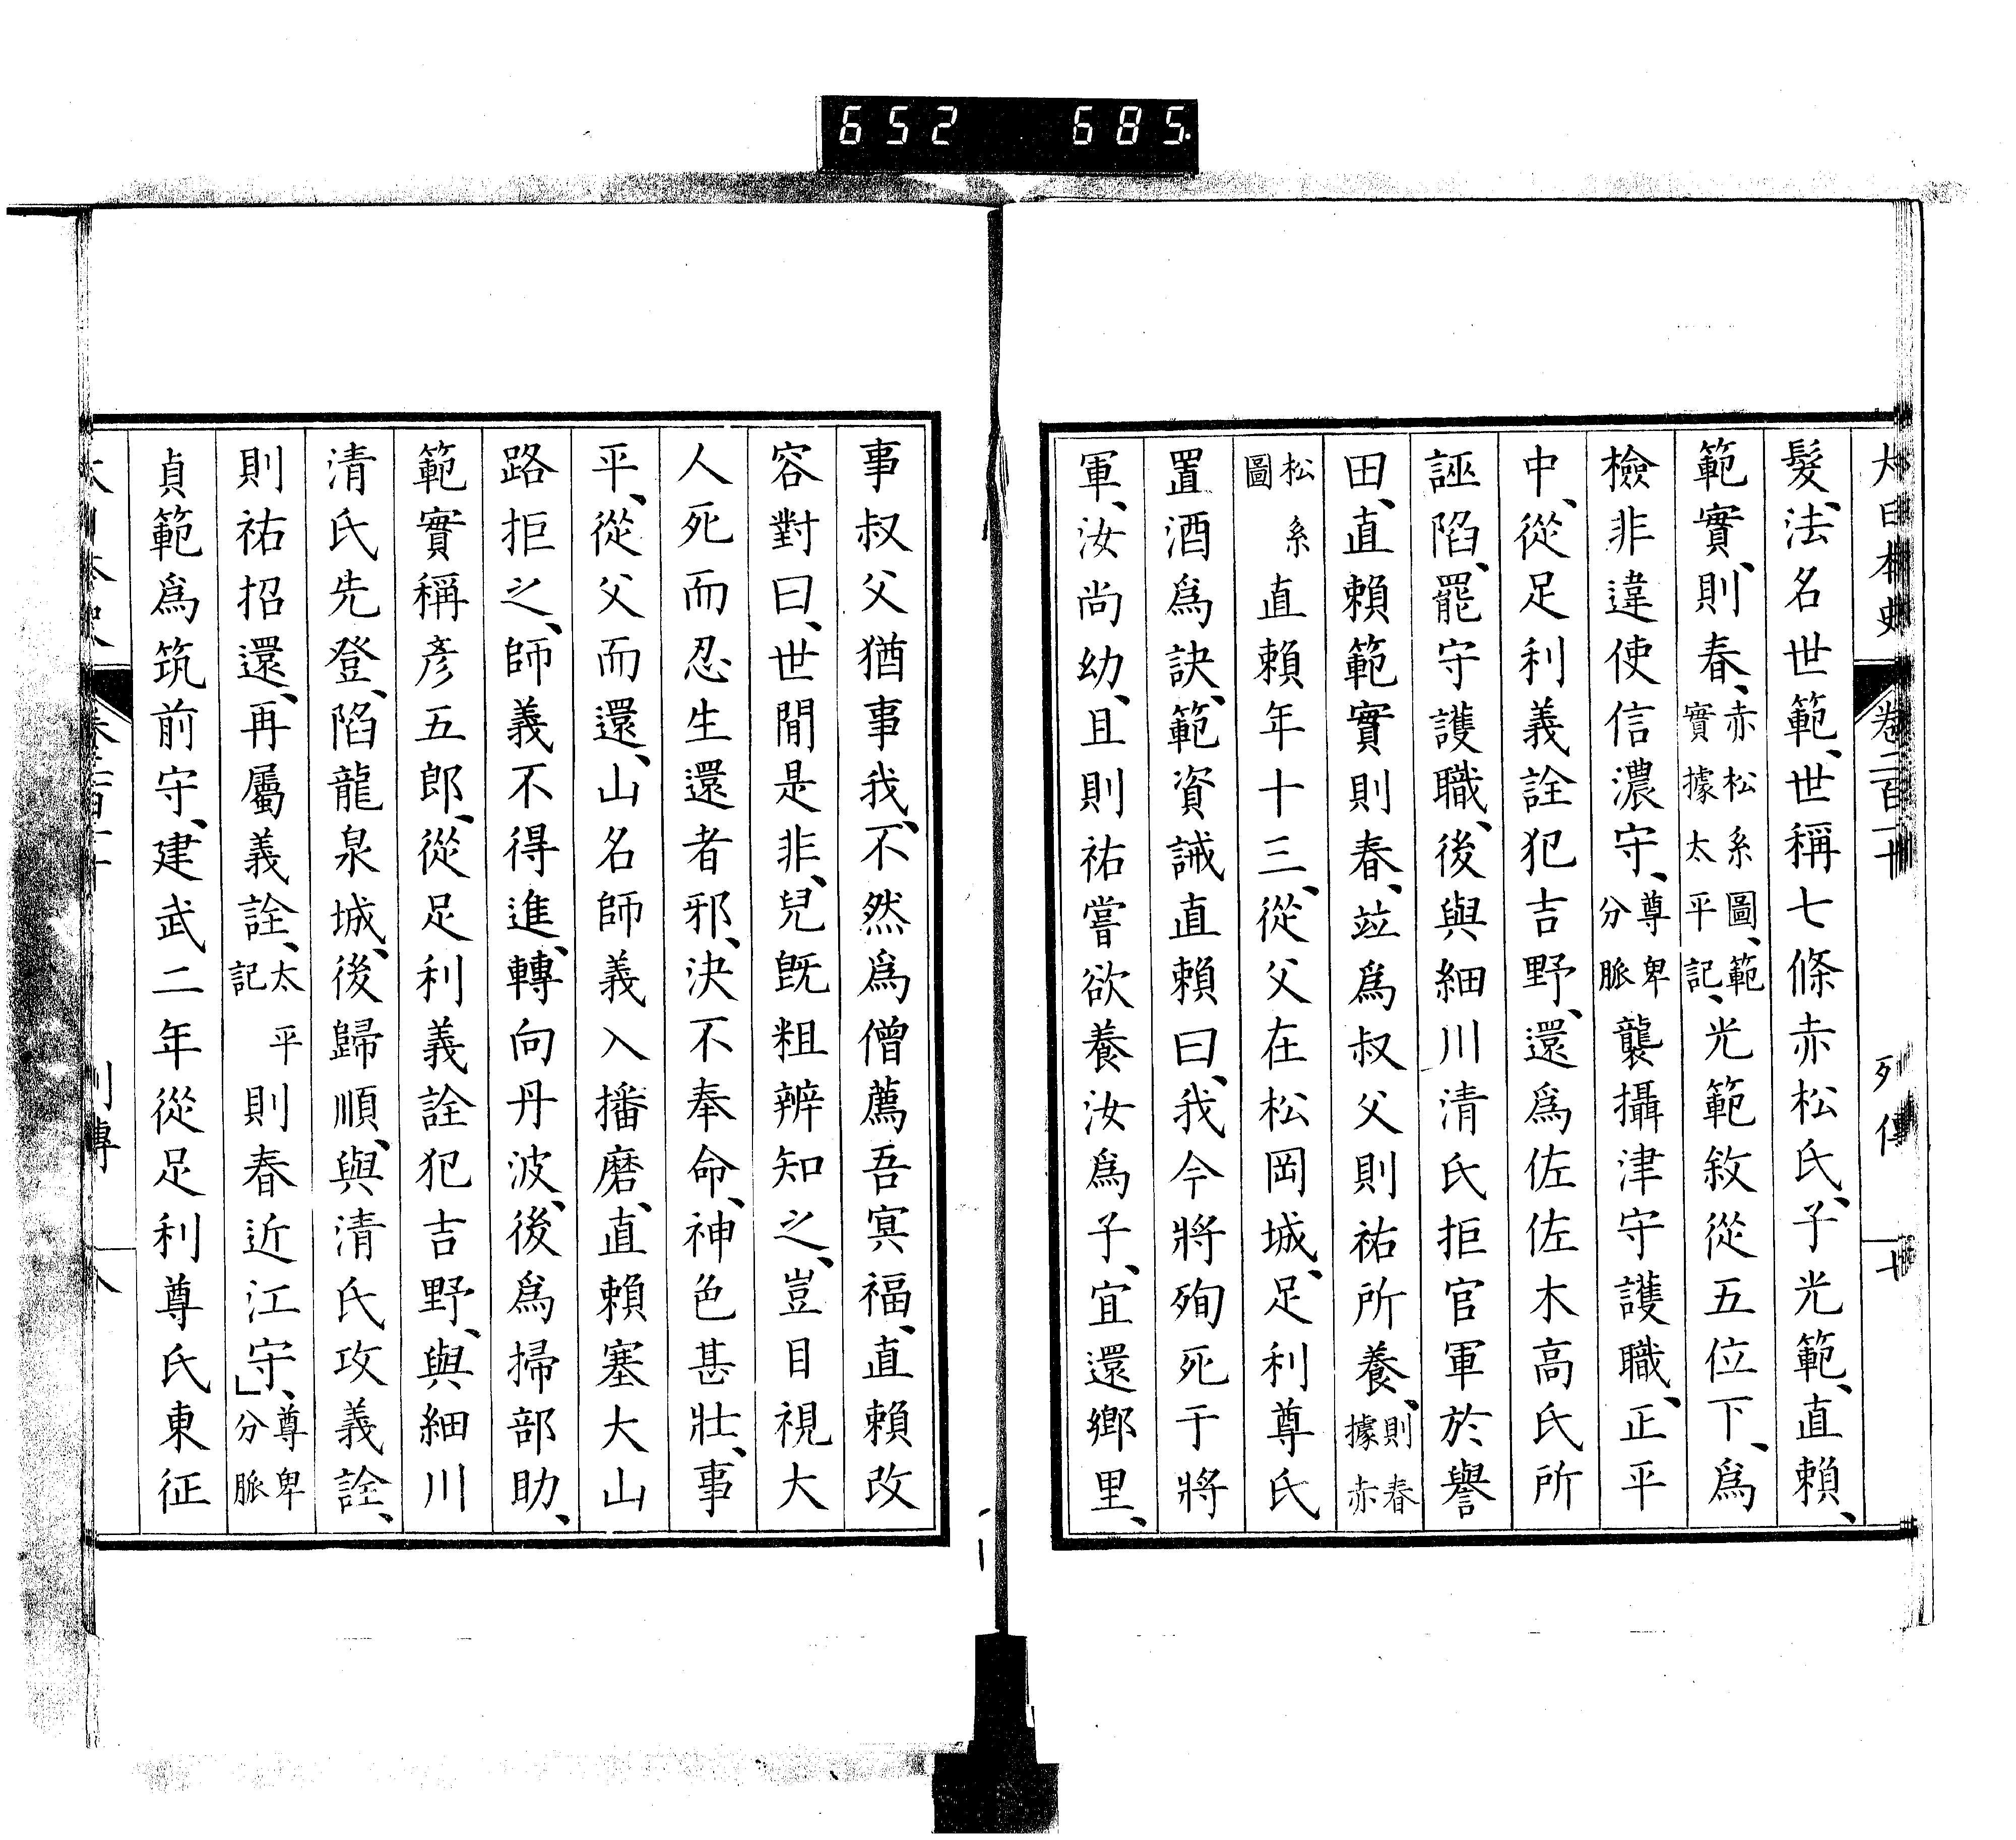 652 685
大日本史 卷二百 列傳 十
髮、法名世範、世稱七條赤松氏、子光範、直賴、
範實、則春、赤松系圖、範實據太平記、光範敘從五位下、爲
檢非違使信濃守、尊卑分脈襲攝津守護職、正平
中、從足利義詮犯吉野、還爲佐佐木高氏所
誣陷、罷守護職、後與細川清氏拒官軍於譽
田、直賴範實則春、竝爲叔父則祐所養、則春據赤
松系圖直賴年十三、從父在松岡城、足利尊氏
置酒爲訣、範資誡直賴曰、我今將殉死于將
軍、汝尚幼、且則祐嘗欲養汝爲子、宜還鄉里、
事叔父猶事我、不然爲僧薦吾冥福、直賴改
容對曰、世閒是非、兒既粗辨知之、豈目視大
人死而忍生還者邪、決不奉命、神色甚壯、事
平、從父而還、山名師義入播磨、直賴塞大山
路拒之、師義不得進、轉向丹波、後爲掃部助、
範實稱彥五郎、從足利義詮犯吉野、與細川
清氏先登、陷龍泉城、後歸順、與清氏攻義詮、
則祐招還、再屬義詮、太平記則春近江守、」尊卑分脈
貞範爲筑前守、建武二年從足利尊氏東征